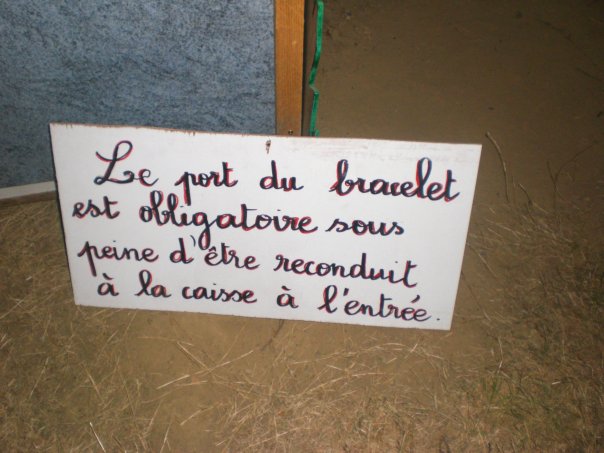 Le port du bracelet
est obligatoire sous
peine d'être reconduit
à la caisse à l'entrée.